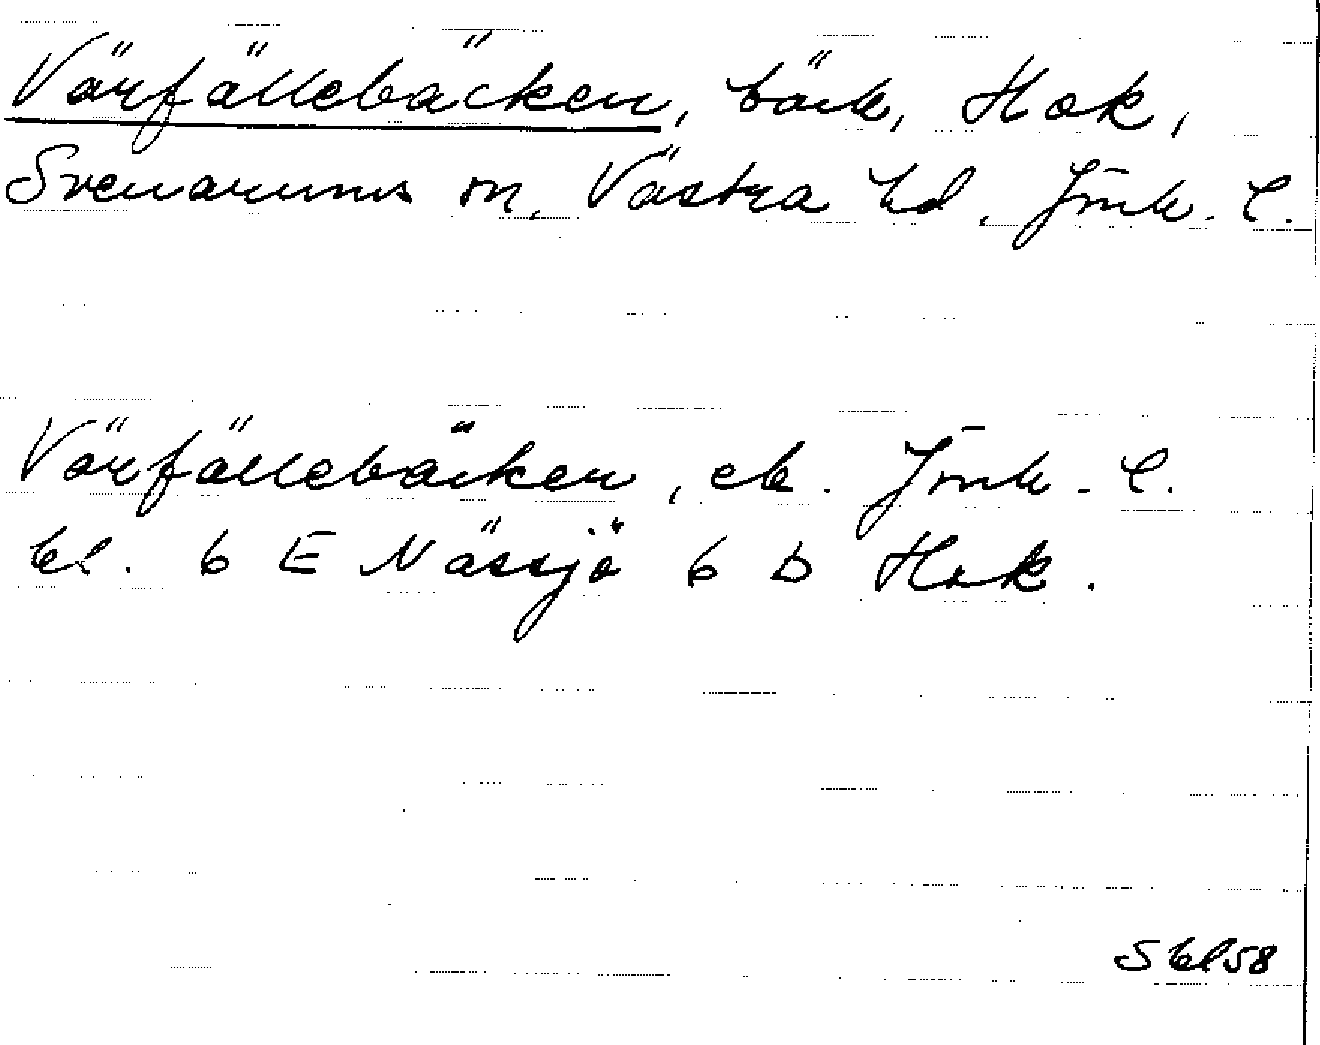 Värfällebäcken, bäck, Hok,
Svenarums sn, Västra hd. Jönk. l.
Värfällebäcken, ek. Jönk. l.
bl. 6 E Nässjö 6 D Hok.
S bl 58